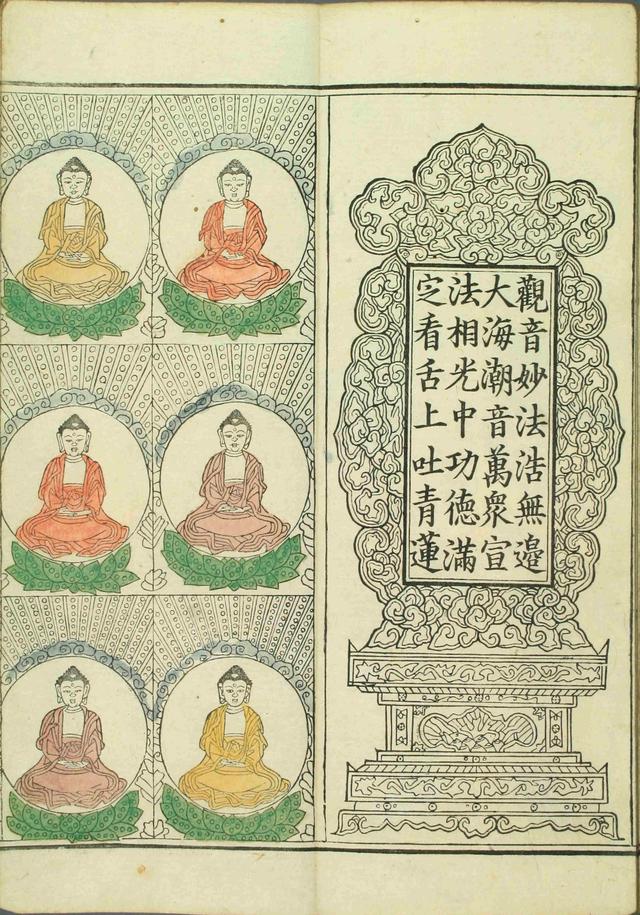 觀音妙法浩無邊
大海潮音萬衆宣
法相光中功德滿
定看舌上吐青蓮